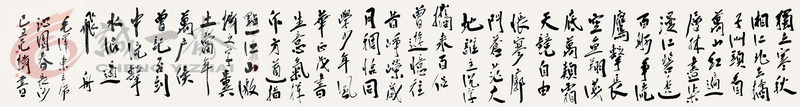 獨立寒秋
湘江北去橘
子洲頭看
萬山紅遍
層林盡染
漫江碧透
百舸爭流
鷹擊長
空魚翔淺
底萬類霜
天競自由
悵寥廓
問蒼茫大
地誰主沉浮
攜來百侶
曾遊憶往
昔崢嶸歲
月稠恰同
學少年風
華正茂書
生意氣揮
斥方遒指
點江山激
揚文字糞
土當年
萬戶侯
曾記否到
中流擊
水浪遏
飛舟
毛澤東主席
沁園春長沙
CHENG YIZHAI